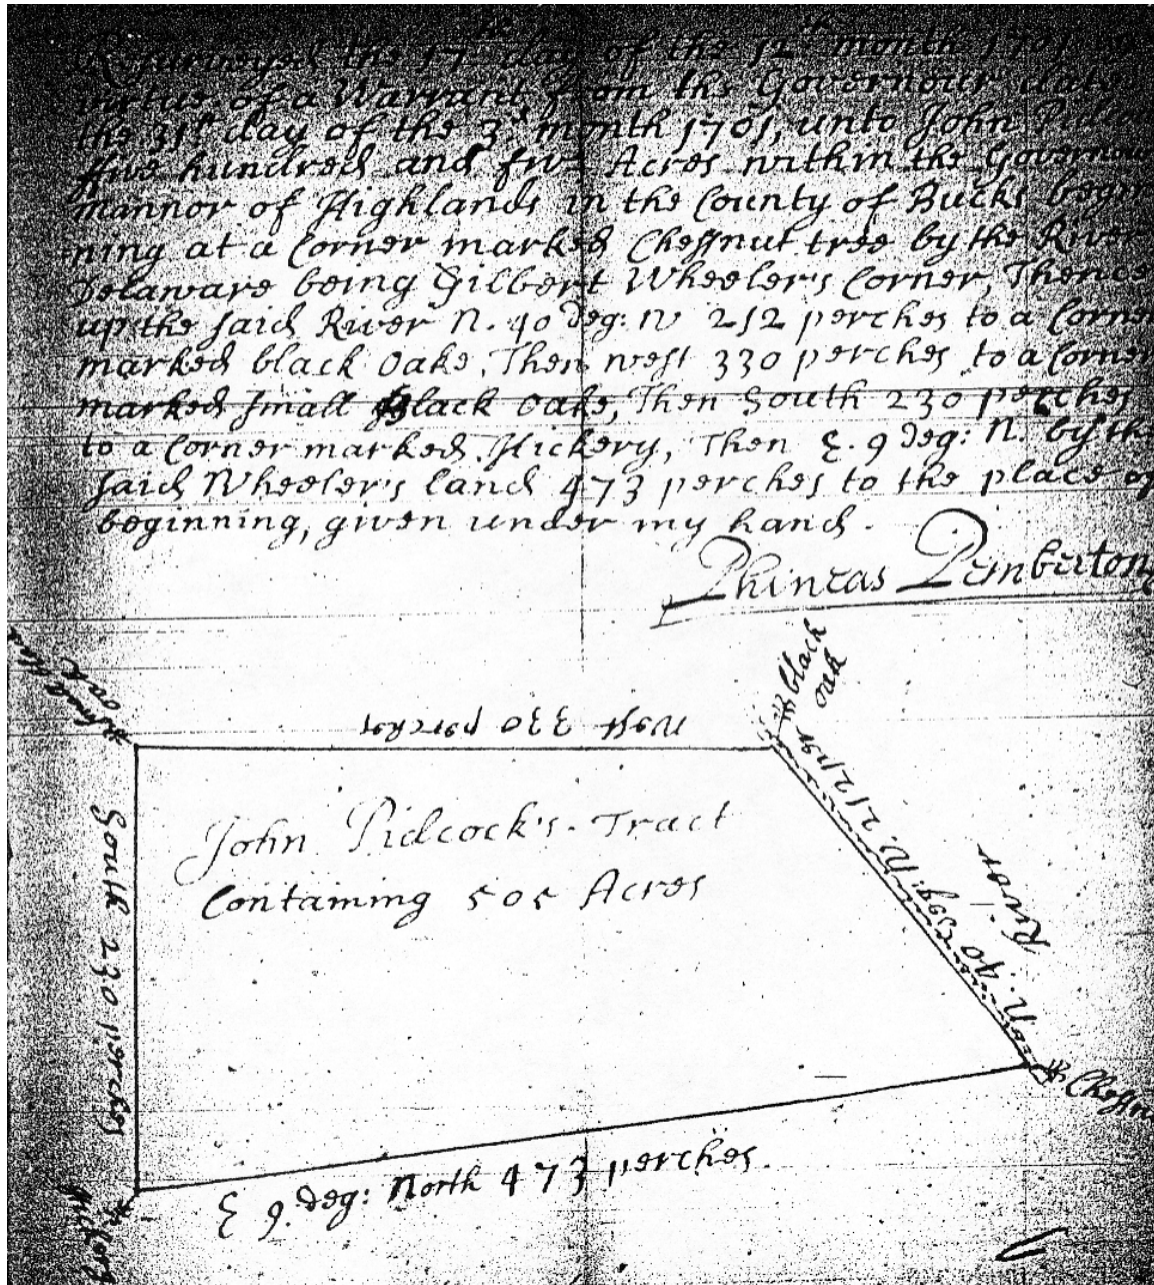 Resurveyed the 17th day of the 12th month 1701 by
virtue of a Warrant from the Governour date
the 31st day of the 3d month 1701, unto John Pidco
ffive hundred and five Acres within the Governou
mannor of Highlands in the County of Bucks begin
ning at a Corner marked Chessnut tree by the River
Delaware being Gilbert Wheeler's Corner, Thence
up the said River N. 40 deg: W 212 perches to a Corner
marked black Oake, Then west 330 perches to a Corner
marked small black Oake, Then South 230 perches
to a Corner marked Hickery, Then E. 9 deg: N. by the
said Wheeler's land 473 perches to the place of
beginning, given under my hand.
Phineas Pemberton
black
oak
West 330 perches
N. 40 deg: W. 212 ps
River
John Pidcock's Tract
Containing 505 Acres
South 230 perches
Chessn
E 9. deg: North 473 perches.
Hickory